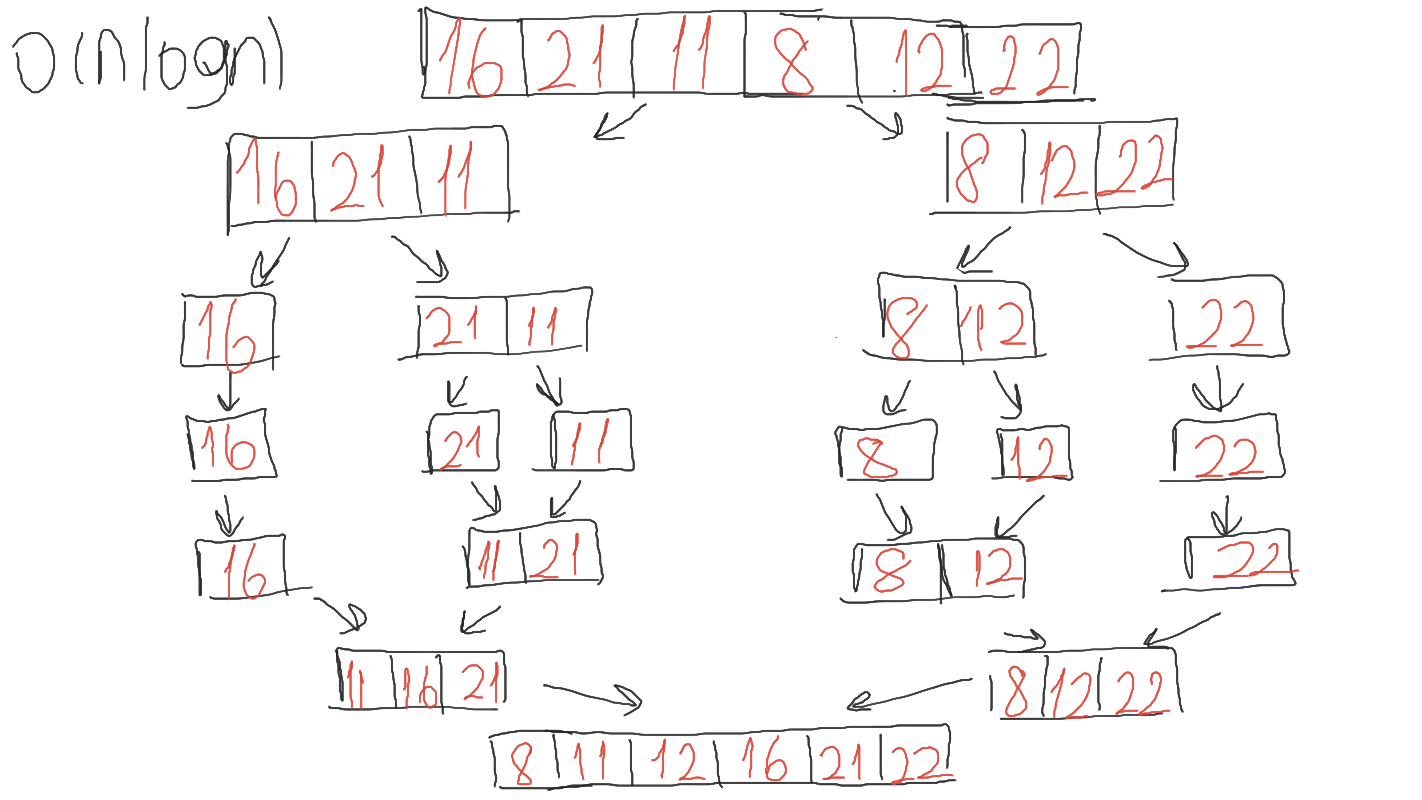 O(nlogn)
16 21 11 8 12 22
16 21 11 8 12 22
16 21 11 8 12 22
16 21 11 8 12 22
16 11 21 8 12 22
11 16 21 8 12 22
8 11 12 16 21 22